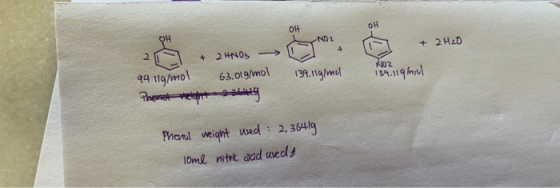 OH OH OH
2 + 2 HNO3 → NO2 + NO2 + 2 H2O
94.11g/mol 63.01g/mol 139.11g/mol 139.11g/mol
Phenol weight used : 2.3641g
10ml nitric acid used